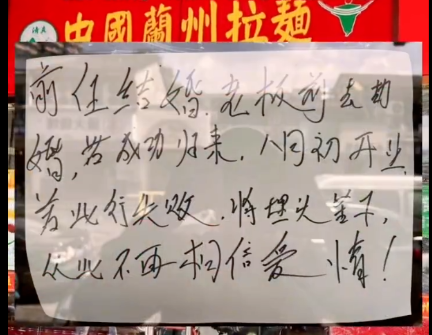 清真
中國蘭州拉麵
前任结婚.老板前去劫
婚,若成功归来.八月初开业
若此行失败.将埋头苦干,
从此不再相信爱情!